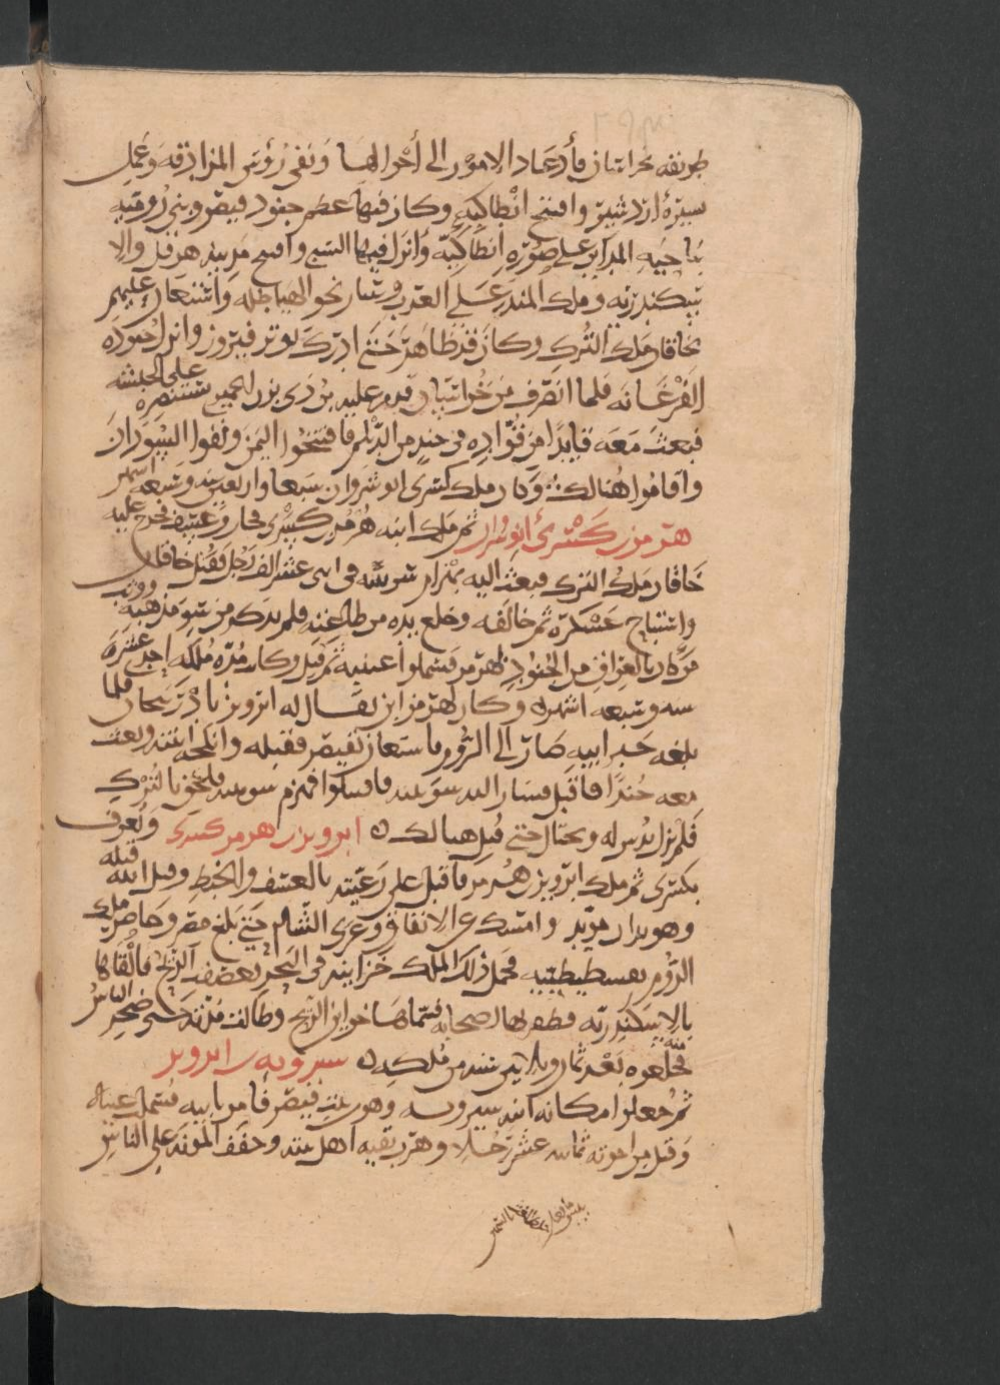 طريقه خراسان فأدعاد الامور الى أحوالها ونفى رؤس المزادقه وعمل
سيرة ازدشير وافتتح انطاكيه وكان فيها عظم جنود قيصر وبنى روميه
بناحيه المداين على صورة انطاكية وانزل فيها السبى وافتتح مدينه هرقل والا
سكندريه وملك المنذر على العرب وسار نحو الهياطله واستعان عليهم
بخاقان ملك الترك وكان قد ظاهره حتى ادرك بوتر فيروز وانزل جنوده
الفرغانه فلما انصرف من خراسان قدم عليه بن ذى يزن الحميرى يستنصره على الحبشه
فبعث معه قايدا من قواده فى جند من الديلم فافتتحوا اليمن ونفوا السودان
واقاموا هنالك وكان ملك كسرى انوشروان سبعا واربعين سنه وسبعه اشهر
هرمز بن كسرى انوشروان ثم ملك ابنه هرمز بن كسرى فجار وعسف فخرج عليه
خاقان ملك الترك فبعث اليه بهرام شوبينه فى اثنى عشر الف رجل فقتل خاقان
واستباح عسكره ثم خالفه وخلع يده من طاعته فلم يدكر من سو مذهبه ووثب
من كان بالعراق من الجنود بهرمز فسملوا عينيه ثم قتل وكان مدة ملكه احد عشره
سنه وسبعه اشهر وكان لهرمز ابن يقال له ابرويز باذربيجان فلما
بلغه خبر ابيه صار الى الروم فاستعان بقيصر فقبله وانكحه ابنته وبعث
معه جندا فاقبل فسار اليه شوبينه فاقتتلوا فهزم شوبينه فلحق بالترك
فلم يزل يدس له ويحتال حتى قتل هنالك ابرويز بن هرمز كسرى ويعرف
بكسرى ثم ملك ابرويز بن هرمز فاقبل على رعيته بالعسف والخبط وقتل ابنه قبله
وهو بدار مويد وامسك عن الانفاق وغزى الشام حتى بلغ مصر وحاصر ملك
الروم بقسطنطينيه فحمل ذلك الملك خزاينه فى البحر فعصفت الريح فالقاها
بالاسكندريه فظفر بها اصحابه فسماها خزاين الريح وطالت مدته حتى ضجر الناس
منه فخلعوه بعد ثمان وثلاثين سنه من ملكه شيرويه بن ابرويز
ثم جعلوا مكانه ابنه شيرويه وهو بنت قيصر فامر بابيه فسملت عيناه
وقتل من اخوته ثمانيه عشر رجلا وهرب بقيه اهل بيته وخفف المونه على الناس